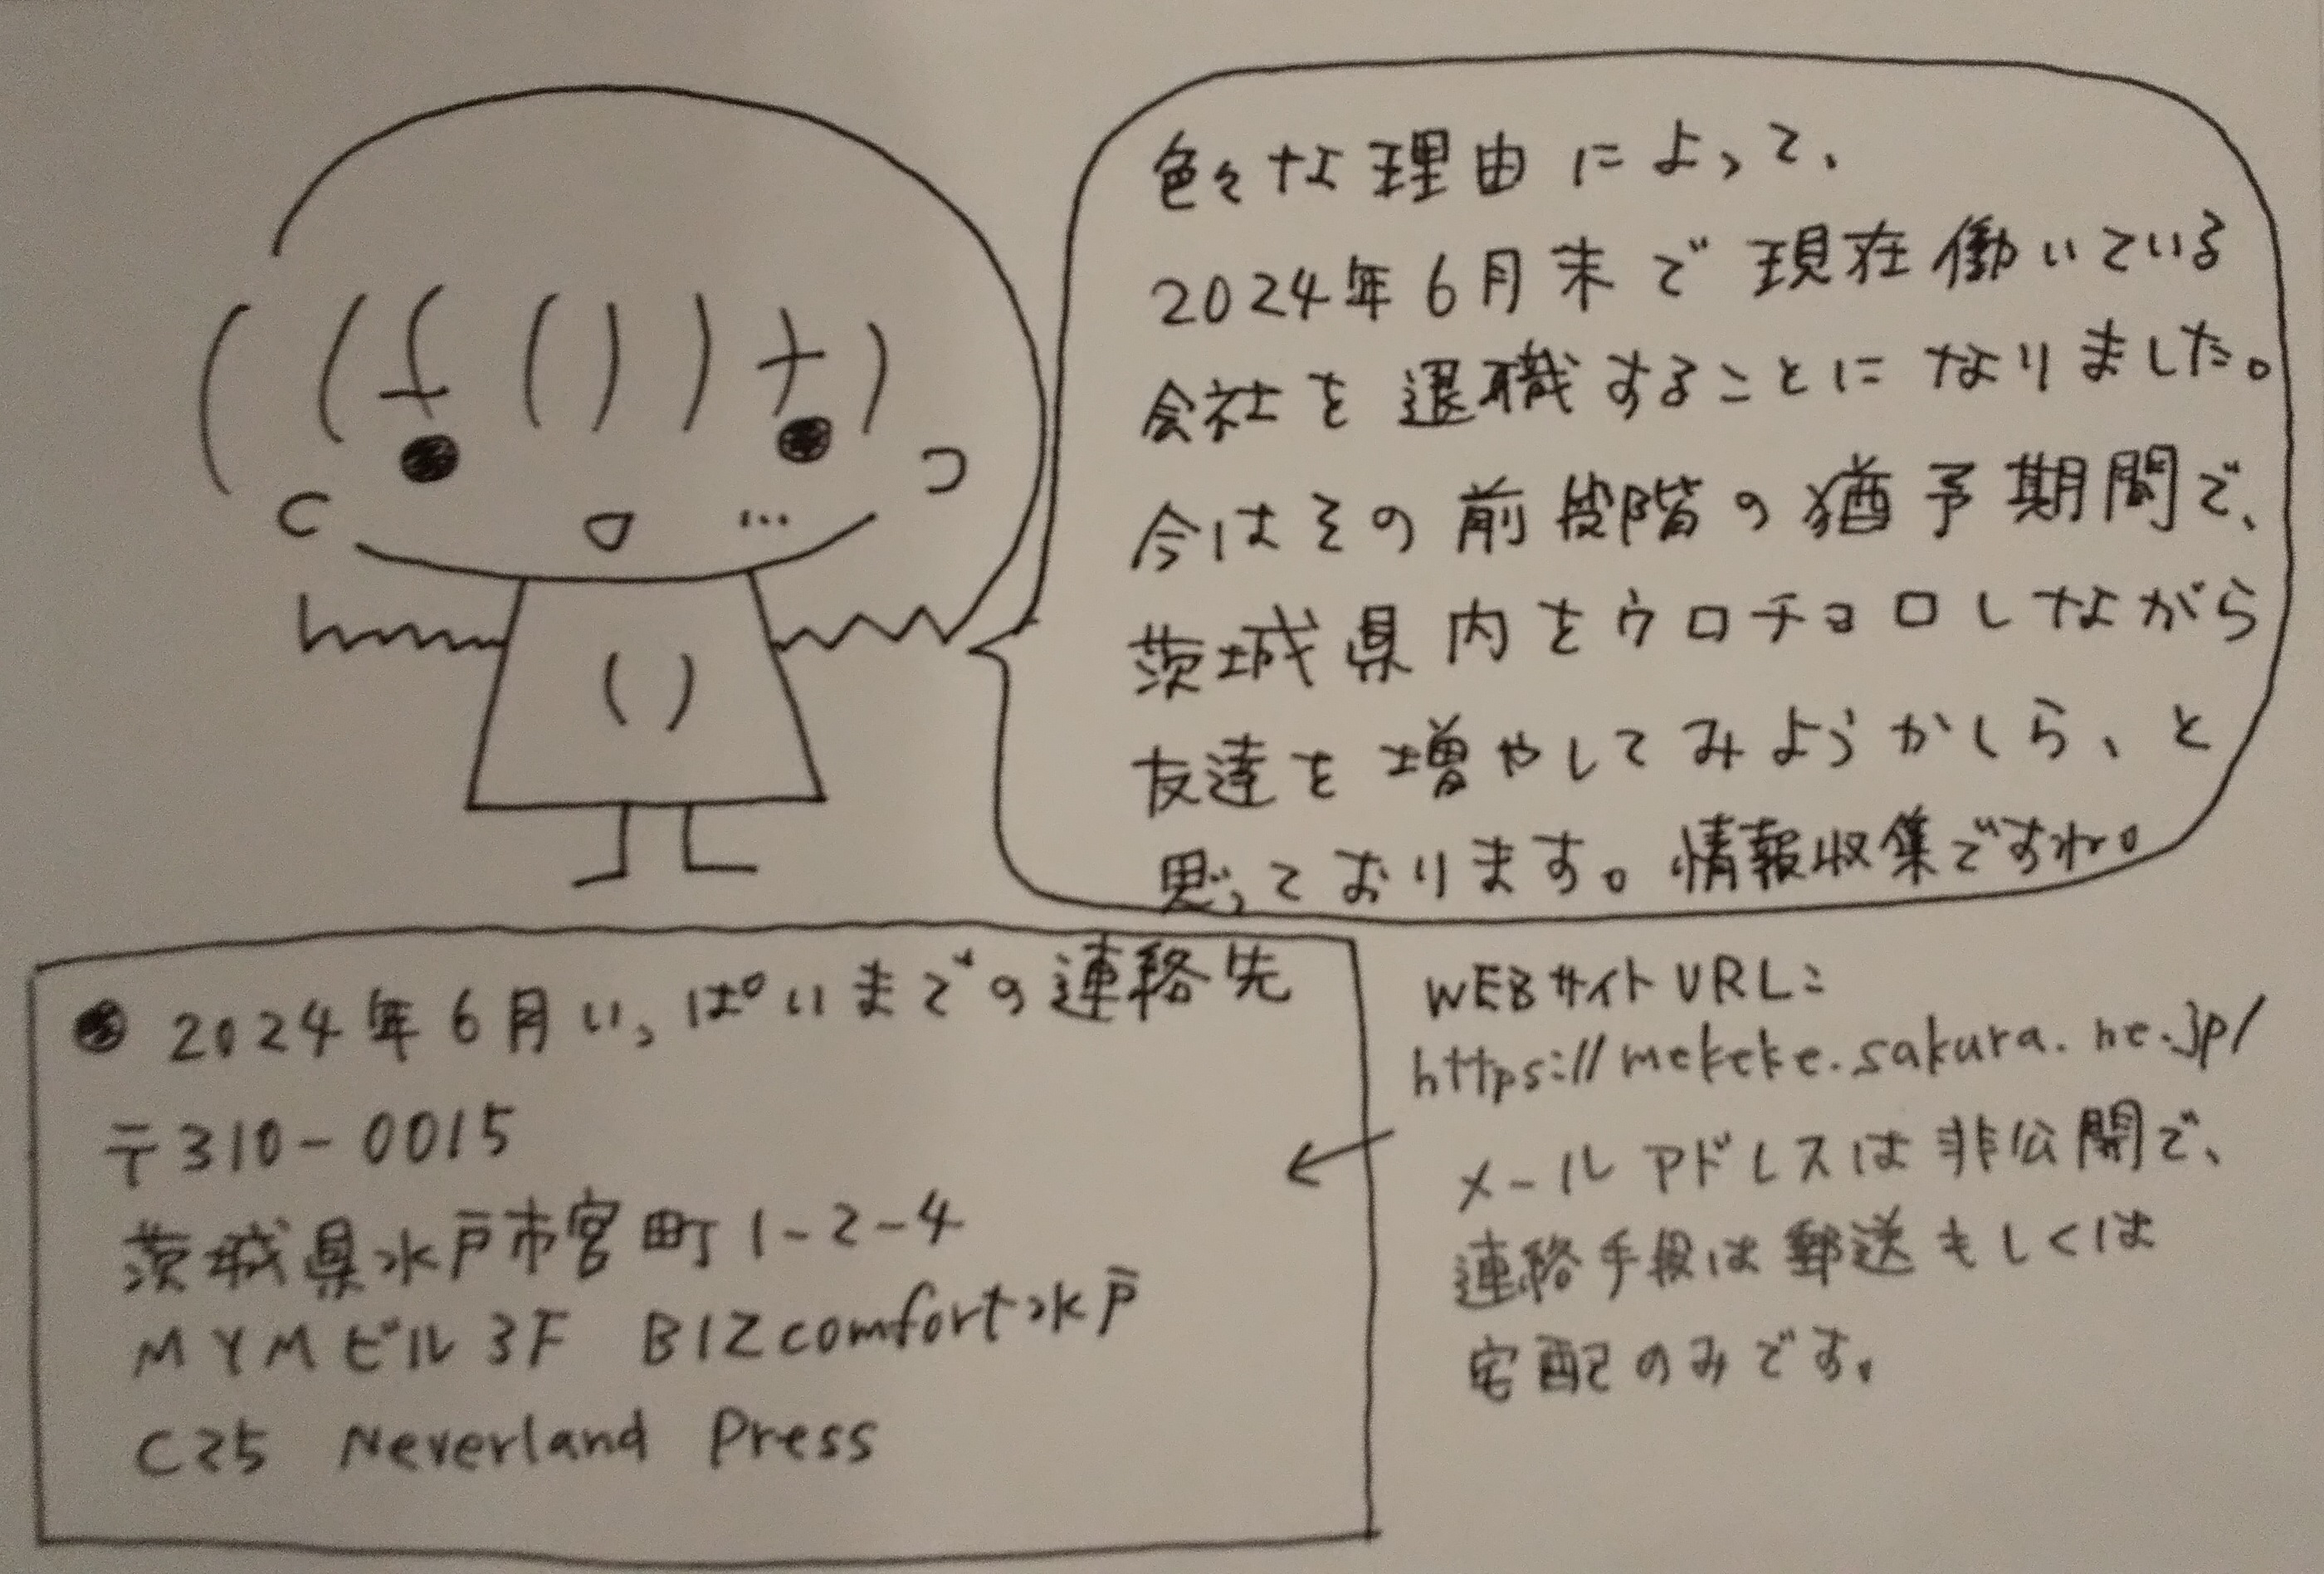 色々な理由によって、
2024年6月末で現在働いている
会社を退職することになりました。
今はその前段階の猶予期間で、
茨城県内をウロチョロしながら
友達を増やしてみようかしら、と
思っております。情報収集ですわ。
● 2024年6月いっぱいまでの連絡先
〒310-0015
茨城県水戸市宮町1-2-4
MYMビル3F BIZcomfort水戸
C25 Neverland Press
WEBサイトURL:
https://mekeke.sakura.ne.jp/
メールアドレスは非公開で、
連絡手段は郵送もしくは
宅配のみです。